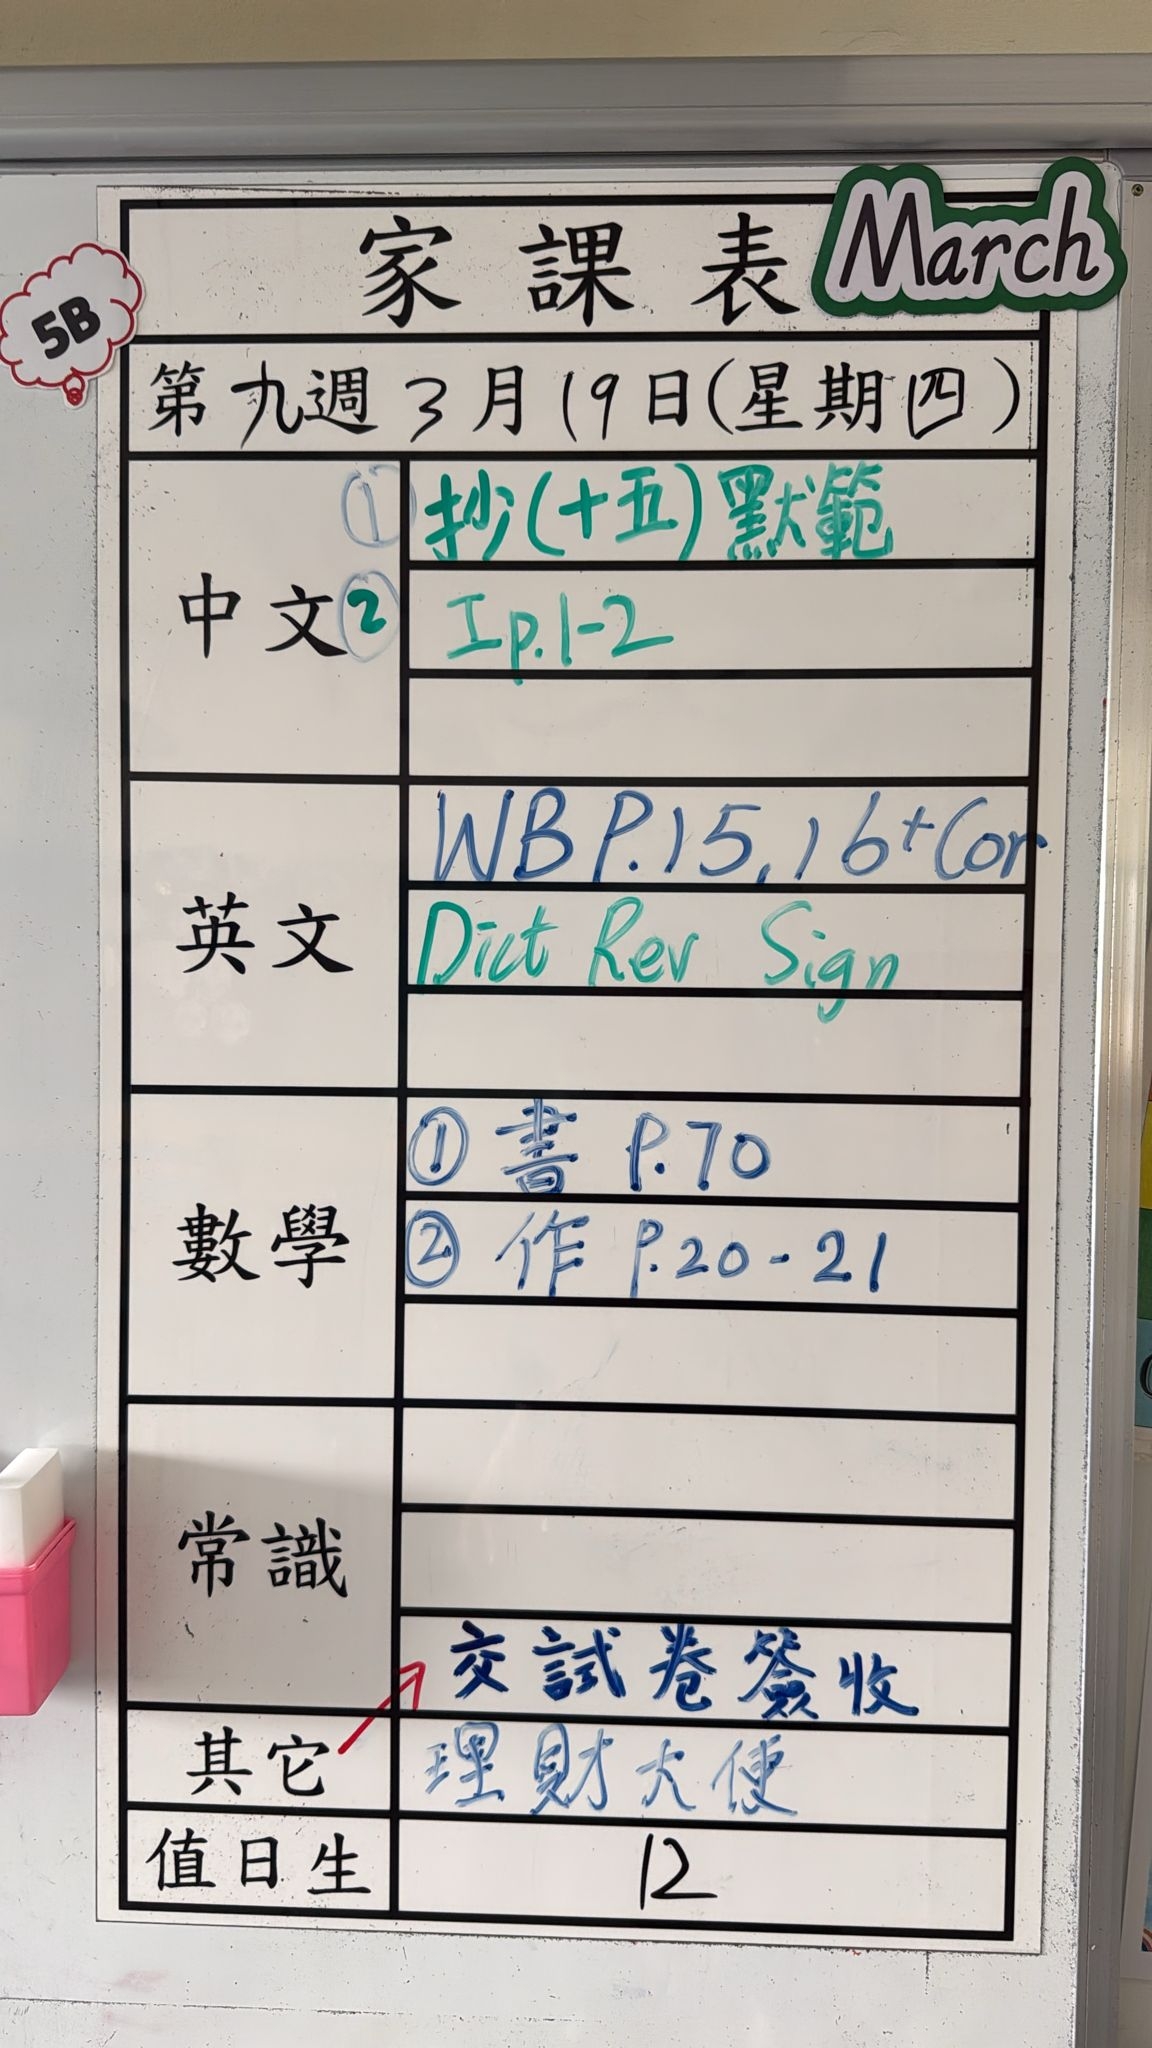 家課表
March
5B
第九週3月19日(星期四)
中文
① 抄(十五)默範
② 工p.1-2
英文
WB P.15,16+Cor
Dict Rev Sign
數學
① 書 P.70
② 作 P.20-21
常識
交試卷簽收
其它
理財大使
值日生
12